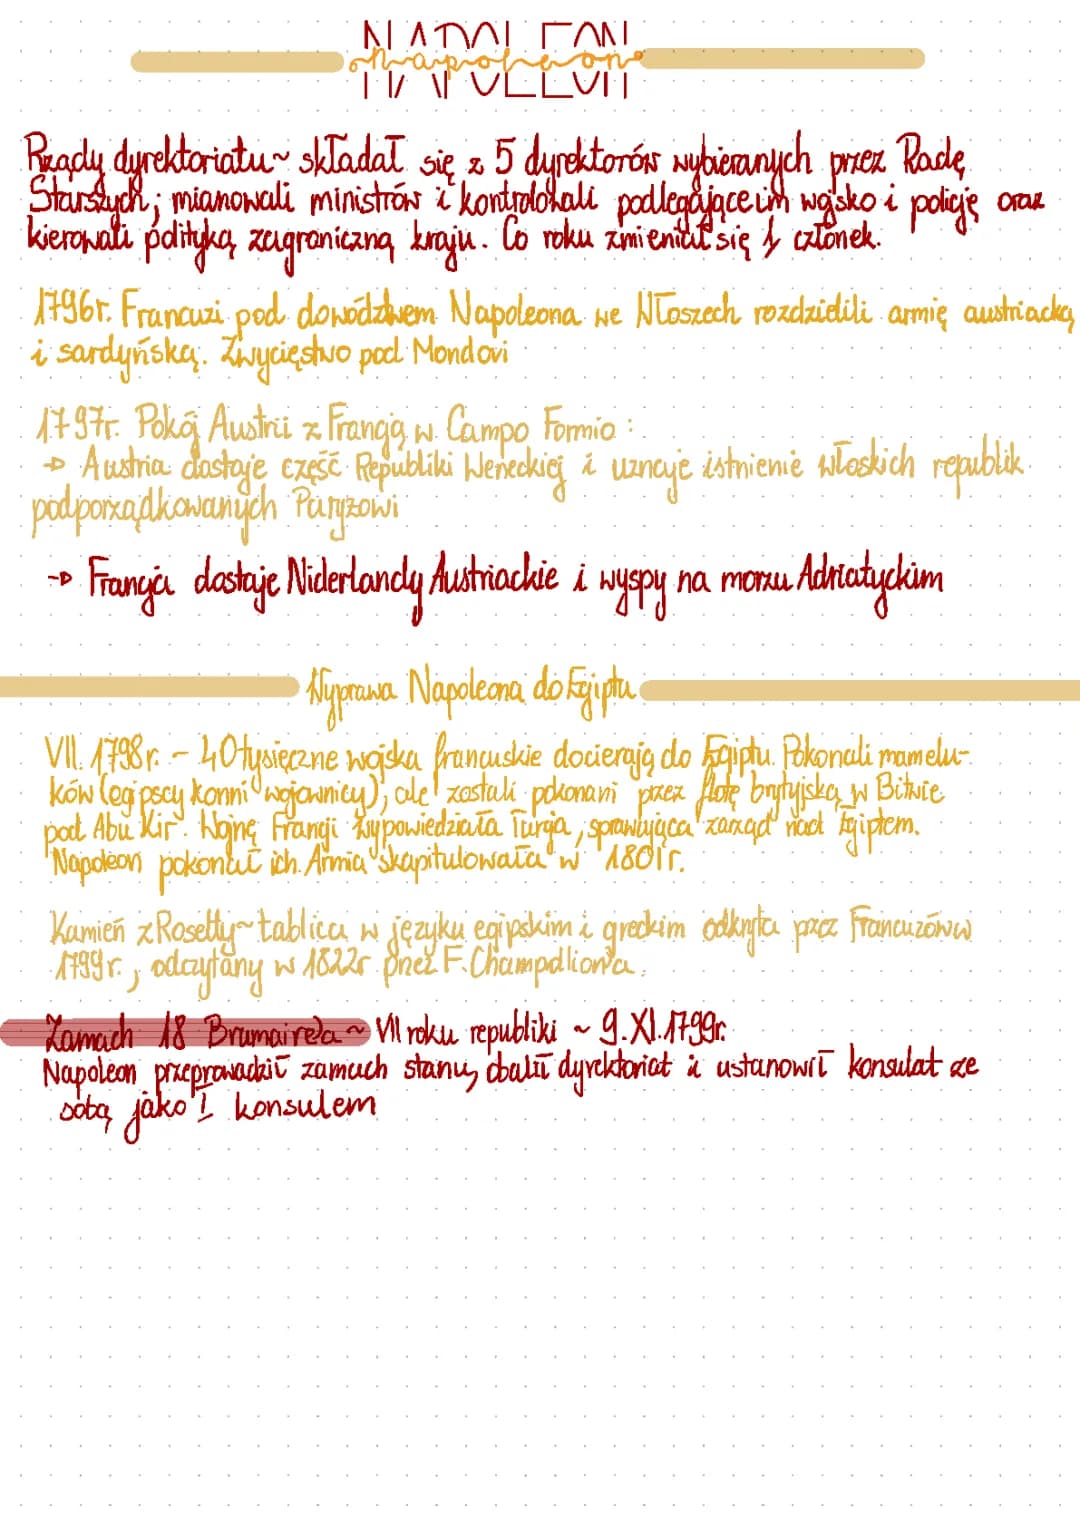 NAPOLEON
Napoleon
Rządy dyrektoriatu ~ składał się z 5 dyrektorów wybieranych przez Radę
Starszych; mianowali ministrów i kontrolowali podlegające im wojsko i policję oraz
kierowali polityką zagraniczną kraju. Co roku zmieniał się 1 członek.
1796r. Francuzi pod dowództwem Napoleona we Włoszech rozdzielili armię austriacką
i sardyńską. Zwycięstwo pod Mondovi
1797r. Pokój Austrii z Francją w Campo Formio:
→ Austria dostaje część Republiki Weneckiej i uznaje istnienie włoskich republik
podporządkowanych Paryżowi
→ Francja dostaje Niderlandy Austriackie i wyspy na morzu Adriatyckim
Wyprawa Napoleona do Egiptu
VII. 1798r. - 40tysięczne wojska francuskie docierają do Egiptu. Pokonali mamelu-
ków (egipscy konni wojownicy), ale zostali pokonani przez flotę brytyjską w Bitwie
pod Abu Kir. Wojnę Francji wypowiedziała Turcja, sprawująca zarząd nad Egiptem.
Napoleon pokonał ich. Armia skapitulowała w 1801r.
Kamień z Rosetty ~ tablica w języku egipskim i greckim odkryta przez Francuzów w
1799r., odczytany w 1822r przez F. Champollion'a.
Zamach 18 Brumaire'a ~ VIII roku republiki ~ 9.XI.1799r.
Napoleon przeprowadził zamach stanu, obalił dyrektoriat i ustanowił konsulat ze
sobą jako I konsulem